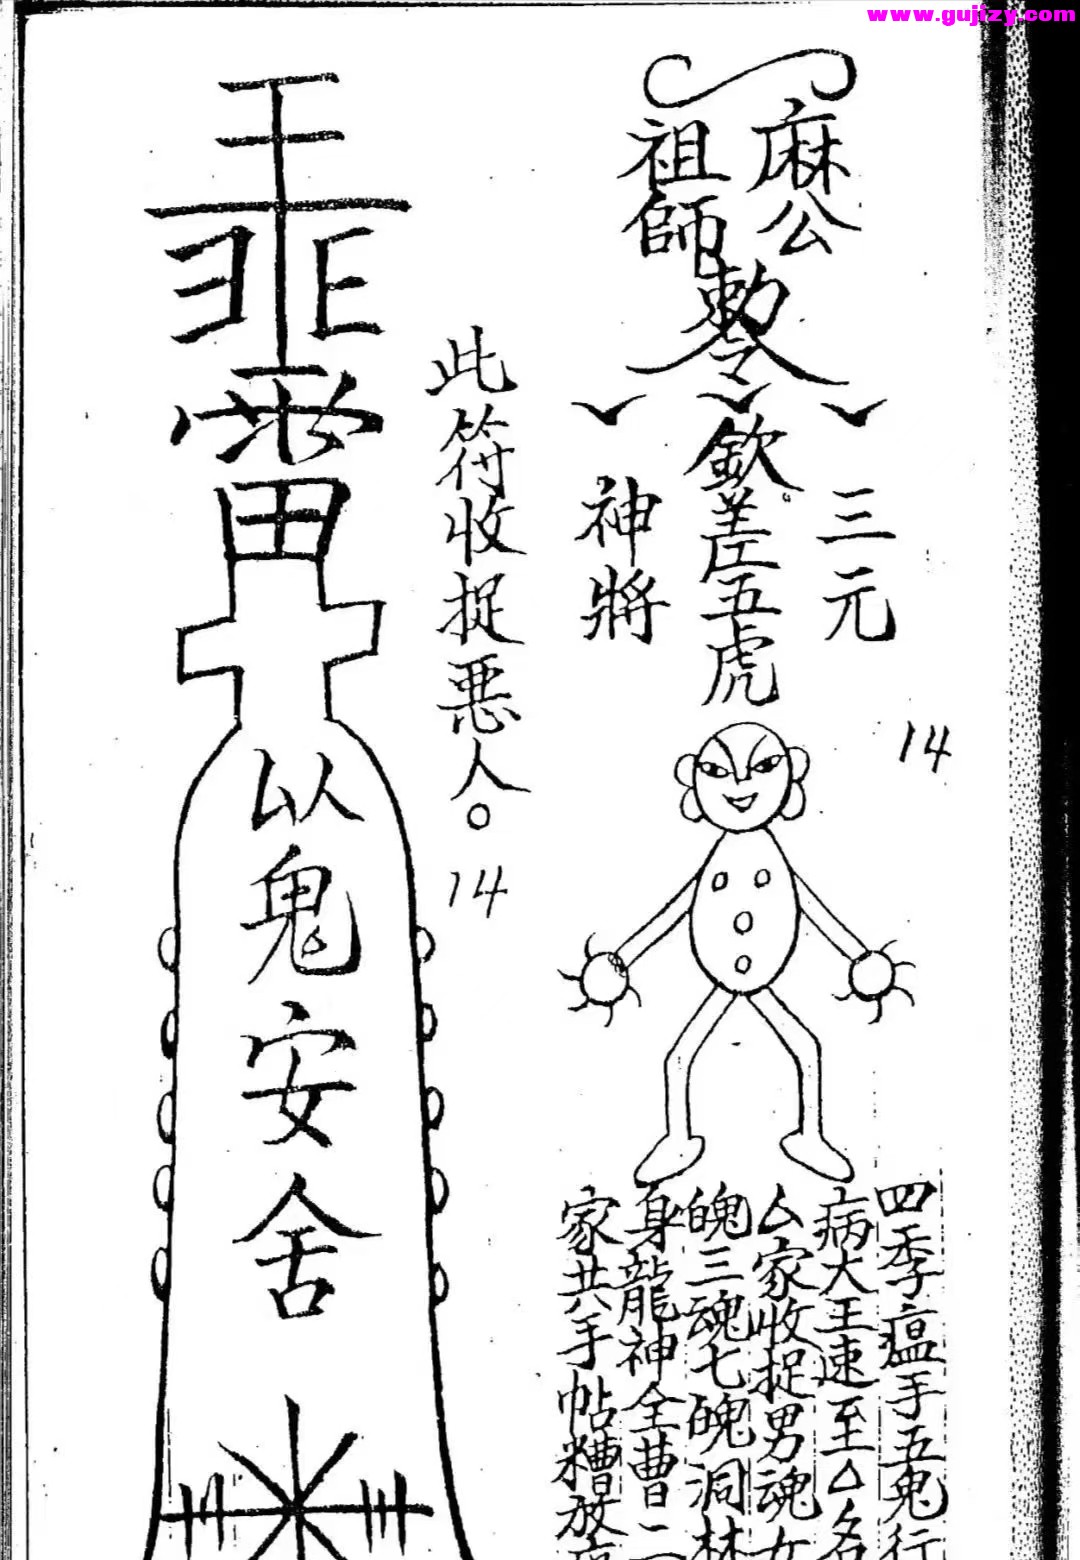 www.gujizy.com
麻公
祖師
敕令
三元
欽差五虎
神將
14
四季瘟手五鬼行
病大王速至厶名
厶家收捉男魂女
魄三魂七魄洞林
身龍神全曹二
家共手帖糟放
此符收捉悪人。
14
雷
以鬼安舍